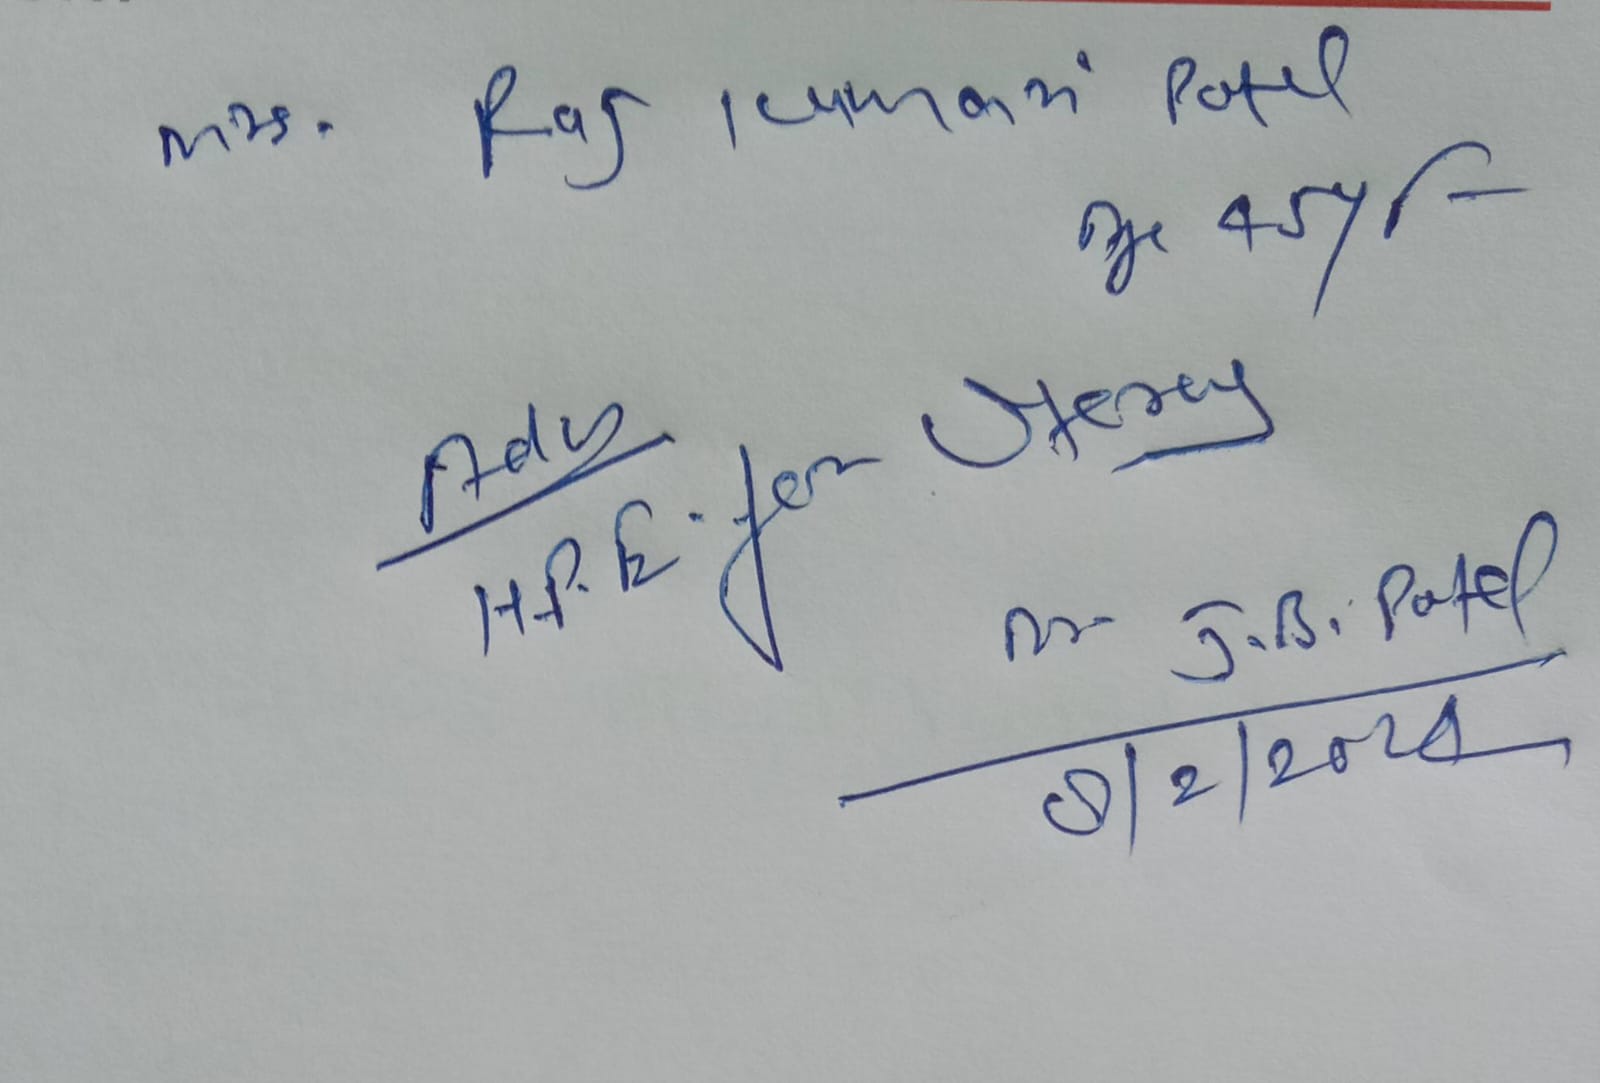 Mrs. Raj Kumari Patel
Age 45yr
Adv
H.P.E. for Uterus
Dr J.B. Patel
8/2/2024